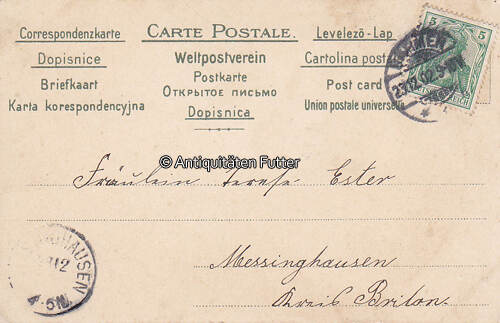 Correspondenzkarte
Dopisnice
Briefkaart
Karta korespondencyjna
CARTE POSTALE.
Weltpostverein
Postkarte
ОТКРЫТОЕ ПИСЬМО
Dopisnica
Levelező-Lap
Cartolina postale
Post card
Union postale universelle
5 5
BARMEN
23.12.02.5-6N.
REICH
© Antiquitäten Futter
Fräulein Terese Ester
Messinghausen
Kreis Brilon.
HAUSEN
12
4-5N.